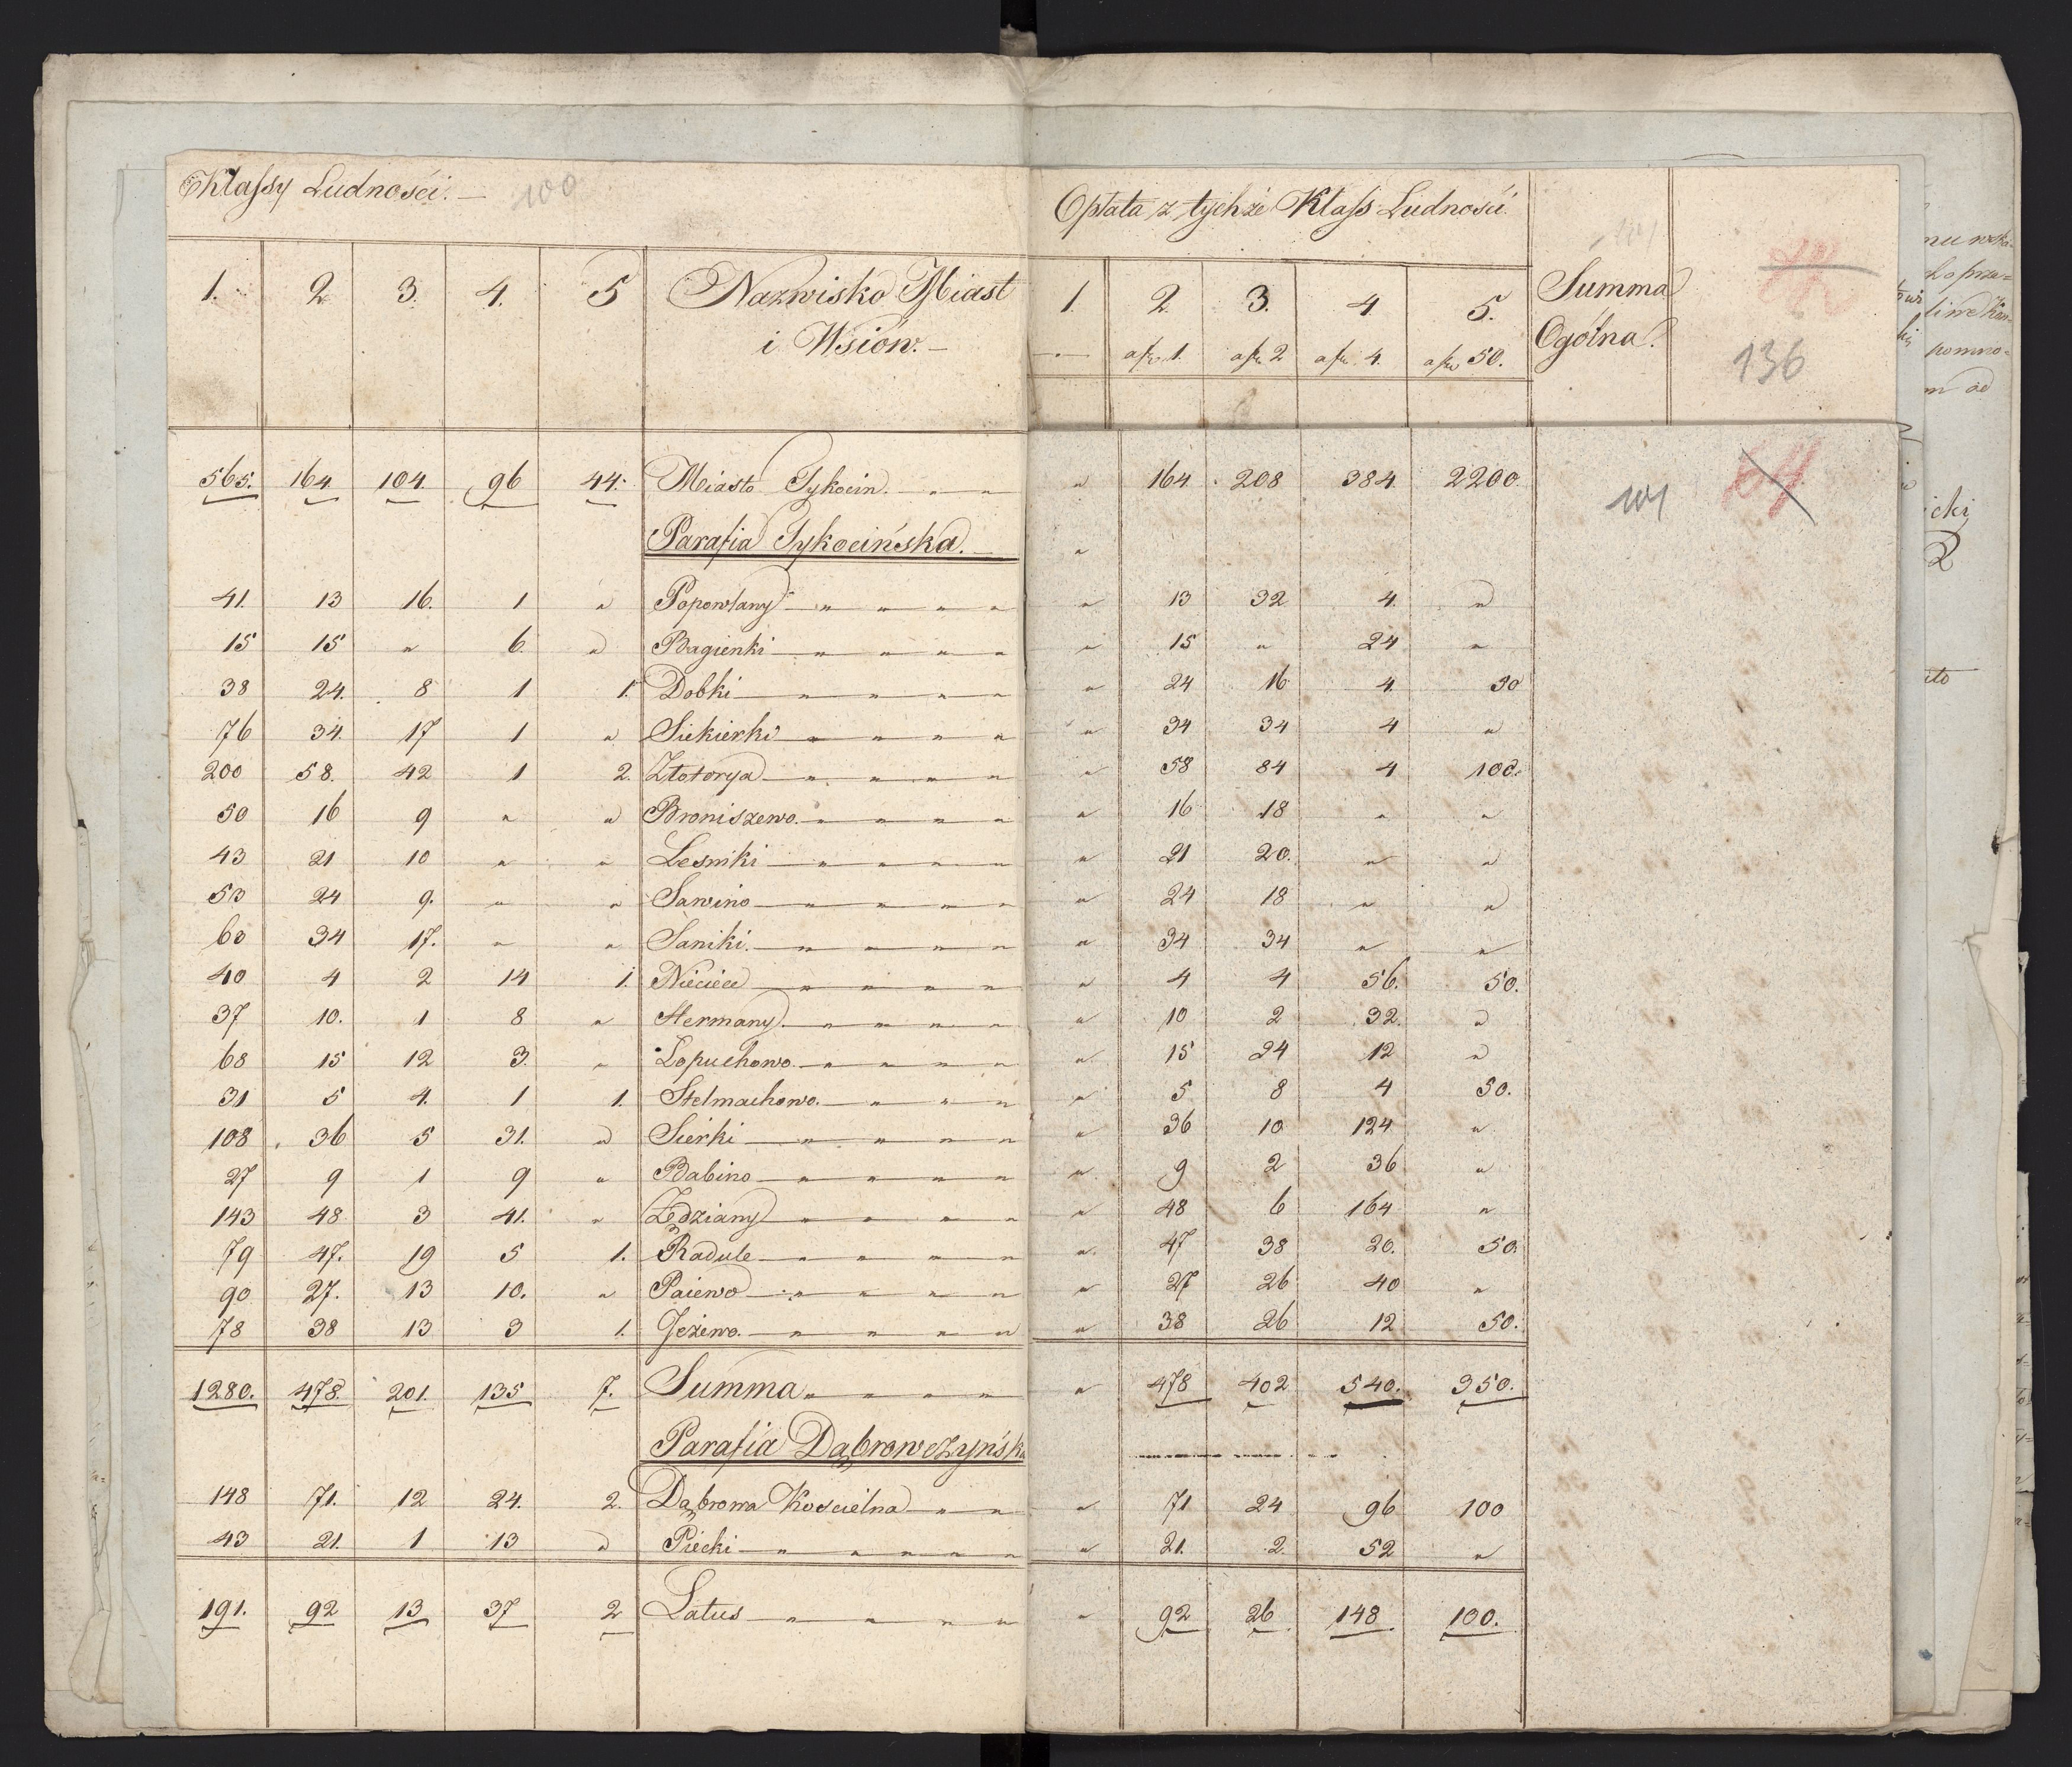 Klassy Ludności. — 100
1. 2 3. 4. 5 Nazwisko Miast
i Wsiów. —
Opłata z tychże Klass Ludności
1. 2. 3. 4 5. Summa
Ogólna.
a fr. 1. a fr. 2 a fr. 4. a fr. 50.
136
565. 164. 104. 96 44. Miasto Tykocin. " " " 164. 208 384 2200.
101
64
Parafia Tykocińska. — "
41. 13 16. 1 " Popowlany " " " " " 13 32 4. "
15 15 " 6. " Bagienki " " " " " 15 " 24 "
38 24. 8 1 1. Dobki " " " " " 24 16 4. 50
76 34. 17 1 " Siekierki " " " " " 34 34 4 "
200 58. 42 1 2. Złotorya " " " " " 58 84 4 100.
50 16 9 " " Broniszewo. " " " " " 16 18 " "
43 21 10 " " Lesniki " " " " " 21 20. " "
53 24 9. " " Sawino " " " " " 24 18 " "
60 34 17. " " Saniki. " " " " " 34 34 " "
40 4 2 14 1. Nieciece " " " " " 4 4 56. 50.
37 10. 1 8 " Hermany. " " " " " 10 2 32. "
68 15 12 3. " Łopuchowo. " " " " " 15 24 12 "
31 5 4. 1 1. Stelmachowo. " " " " 5 8 4 50.
108 36 5 31. " Sierki " " " " " 36 10 124 "
27 9 1 9 " Babino " " " " " 9 2 36 "
143 48 3 41. " Zędziany " " " " " 48 6 164 "
79 47. 19 5 1. Radule " " " " " 47 38 20. 50.
90 27. 13 10. " Paiewo " " " " " 27 26 40 "
78 38 13 3 1. Jeżewo. " " " " " 38 26 12 50.
1280. 478. 201. 135 7. Summa " " " " " 478 402 540. 350.
Parafia Dąbrowczyńska
148 71. 12 24. 2. Dąbrowa Kościelna " " " 71 24 96 100
43 21. 1 13 " Piecki " " " " " " 21. 2. 52 "
191. 92 13 37 2 Latus " " " " " 92 26 148 100.